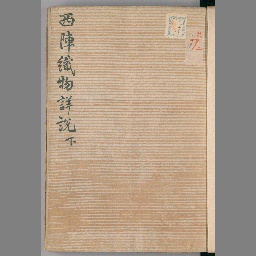 西陣織物詳説 下